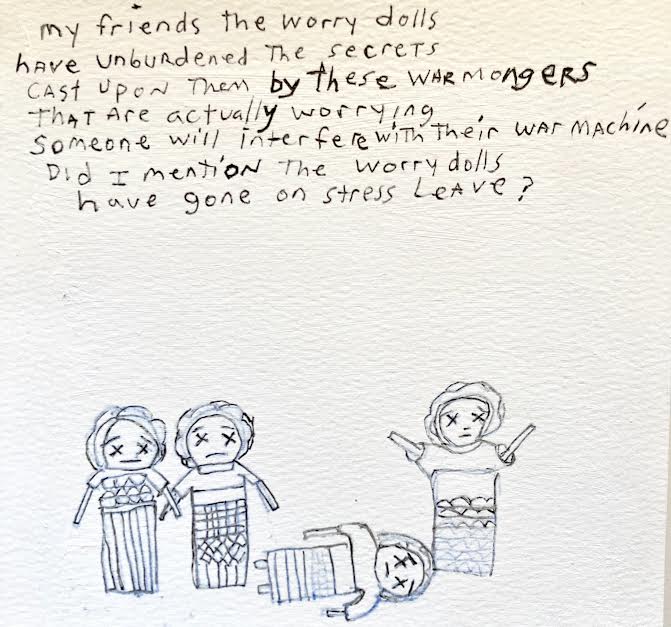 my friends the worry dolls
have unburdened the secrets
cast upon them by these warmongers
that are actually worrying
someone will interfere with their war machine
Did I mention the worry dolls
have gone on stress leave?